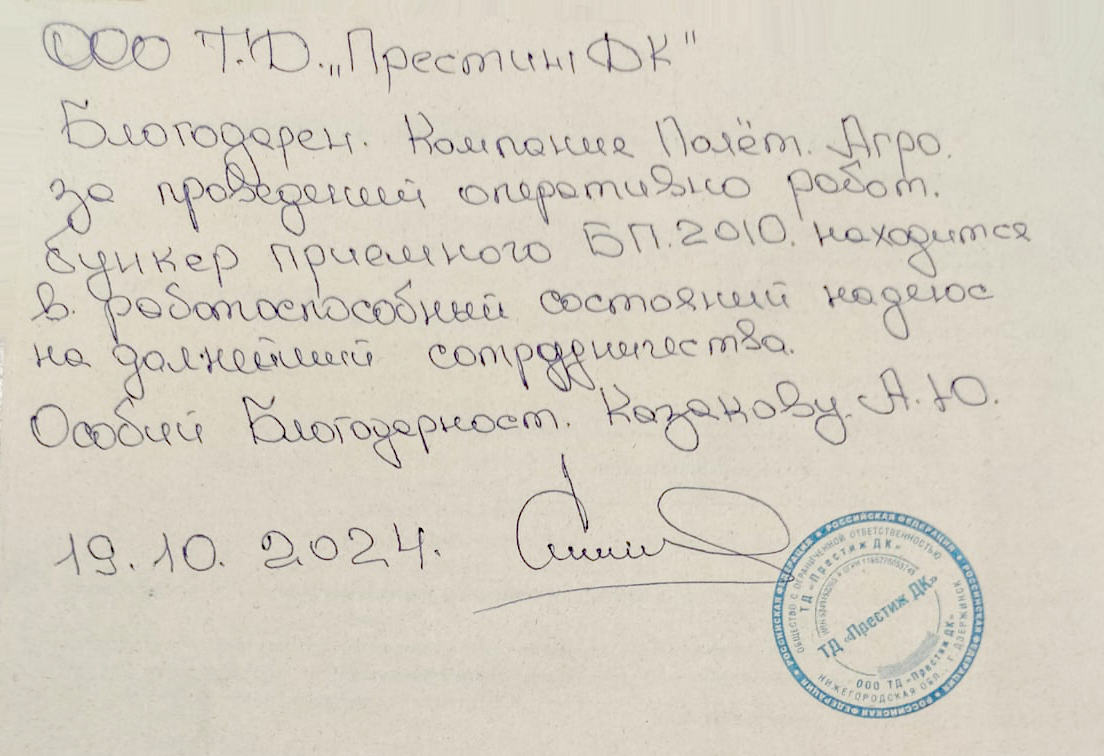 ООО Т.Д. „Престиж ДК"
Благодарен. Компание Полёт. Агро.
за проведений оперативно робот.
бункер приемного БП.2010. находится
в. роботоспособный состояний надеюс
на далнейший сотрудничества.
Особий Благодарност. Казакову. А.Ю.
19.10.2024.
РОССИЙСКАЯ ФЕДЕРАЦИЯ * РОССИЙСКАЯ ФЕДЕРАЦИЯ * РОССИЙСКАЯ ФЕДЕРАЦИЯ * РОССИЙСКАЯ ФЕДЕРАЦИЯ
ОБЩЕСТВО С ОГРАНИЧЕННОЙ ОТВЕТСТВЕННОСТЬЮ
ТД «Престиж ДК»
ТД «Престиж ДК»
ООО ТД «Престиж ДК»
НИЖЕГОРОДСКАЯ ОБЛ., Г. ДЗЕРЖИНСК